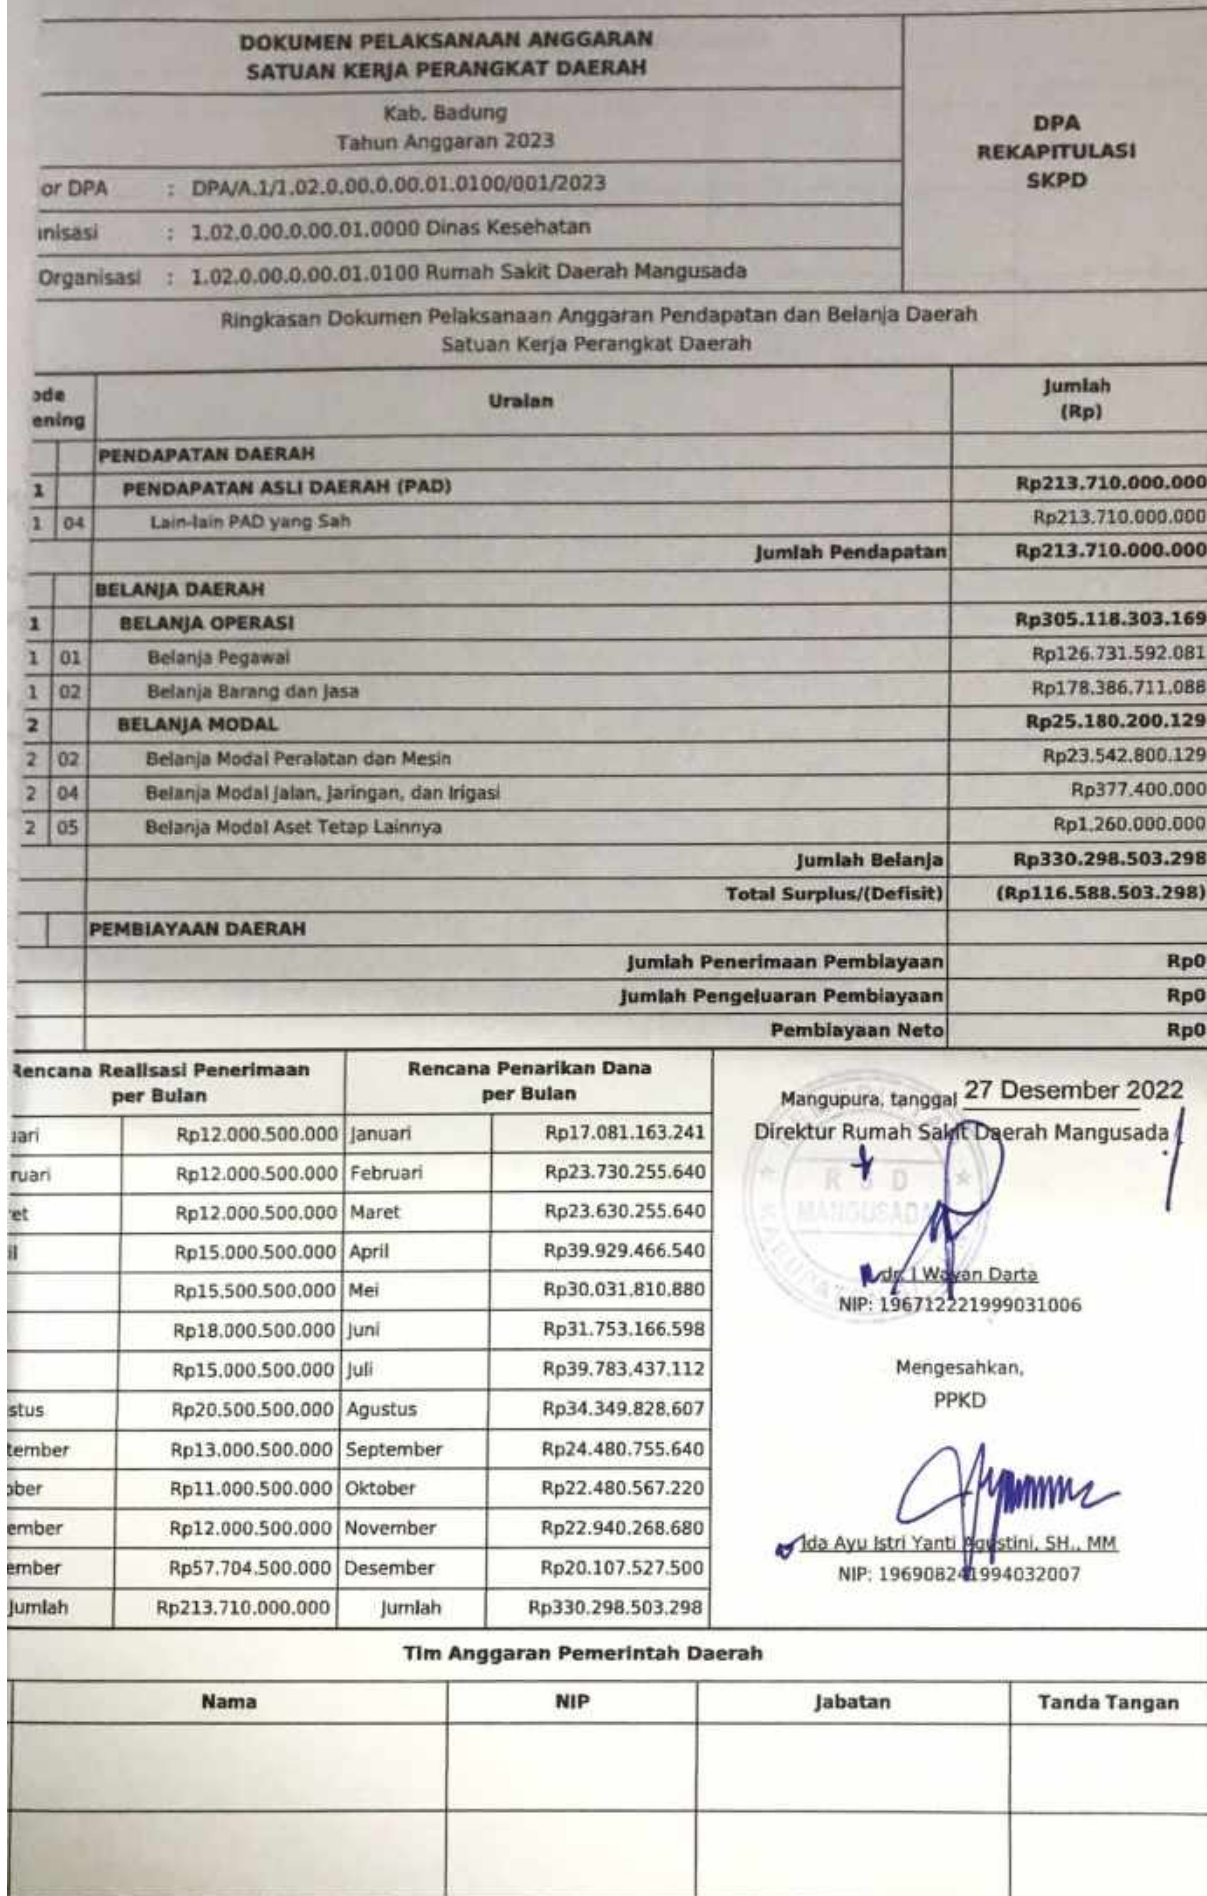 DOKUMEN PELAKSANAAN ANGGARAN
SATUAN KERJA PERANGKAT DAERAH
Kab. Badung
Tahun Anggaran 2023
DPA
REKAPITULASI
SKPD
or DPA : DPA/A.1/1.02.0.00.0.00.01.0100/001/2023
nisasi : 1.02.0.00.0.00.01.0000 Dinas Kesehatan
Organisasi : 1.02.0.00.0.00.01.0100 Rumah Sakit Daerah Mangusada
Ringkasan Dokumen Pelaksanaan Anggaran Pendapatan dan Belanja Daerah
Satuan Kerja Perangkat Daerah
ode
ening
Uraian
Jumlah
(Rp)
PENDAPATAN DAERAH
1 PENDAPATAN ASLI DAERAH (PAD) Rp213.710.000.000
1 04 Lain-lain PAD yang Sah Rp213.710.000.000
Jumlah Pendapatan Rp213.710.000.000
BELANJA DAERAH
1 BELANJA OPERASI Rp305.118.303.169
1 01 Belanja Pegawai Rp126.731.592.081
1 02 Belanja Barang dan Jasa Rp178.386.711.088
2 BELANJA MODAL Rp25.180.200.129
2 02 Belanja Modal Peralatan dan Mesin Rp23.542.800.129
2 04 Belanja Modal Jalan, Jaringan, dan Irigasi Rp377.400.000
2 05 Belanja Modal Aset Tetap Lainnya Rp1.260.000.000
Jumlah Belanja Rp330.298.503.298
Total Surplus/(Defisit) (Rp116.588.503.298)
PEMBIAYAAN DAERAH
Jumlah Penerimaan Pembiayaan Rp0
Jumlah Pengeluaran Pembiayaan Rp0
Pembiayaan Neto Rp0
Rencana Realisasi Penerimaan
per Bulan
Rencana Penarikan Dana
per Bulan
uari Rp12.000.500.000 Januari Rp17.081.163.241
ruari Rp12.000.500.000 Februari Rp23.730.255.640
et Rp12.000.500.000 Maret Rp23.630.255.640
il Rp15.000.500.000 April Rp39.929.466.540
Rp15.500.500.000 Mei Rp30.031.810.880
Rp18.000.500.000 Juni Rp31.753.166.598
Rp15.000.500.000 Juli Rp39.783.437.112
stus Rp20.500.500.000 Agustus Rp34.349.828.607
tember Rp13.000.500.000 September Rp24.480.755.640
ober Rp11.000.500.000 Oktober Rp22.480.567.220
ember Rp12.000.500.000 November Rp22.940.268.680
ember Rp57.704.500.000 Desember Rp20.107.527.500
Jumlah Rp213.710.000.000 Jumlah Rp330.298.503.298
Mangupura, tanggal 27 Desember 2022
Direktur Rumah Sakit Daerah Mangusada
RSD
MANGUSADA
dr. I Wayan Darta
NIP: 196712221999031006
Mengesahkan,
PPKD
Ida Ayu Istri Yanti Agustini, SH., MM
NIP: 196908241994032007
Tim Anggaran Pemerintah Daerah
Nama NIP Jabatan Tanda Tangan